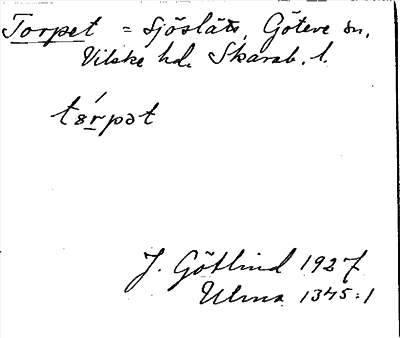 Torpet = Sjöslätt, Göteve sn,
Vilske hd. Skarab. l.
tɷ́rpət
J. Götlind 1927
Ulma 1345:1